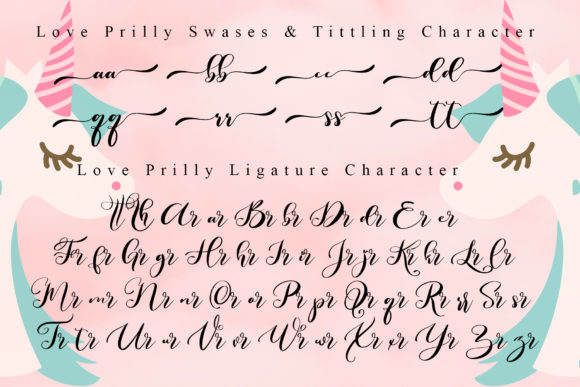 Love Prilly Swases & Tittling Character
aa bb cc dd
qq rr ss tt
Love Prilly Ligature Character
Th Ar ar Br br Dr dr Er er
Fr fr Gr gr Hr hr Ir ir Jr jr Kr kr Lr lr
Mr mr Nr nr Or or Pr pr Qr qr Rr rr Sr sr
Tr tr Ur ur Vr vr Wr wr Xr xr Yr yr Zr zr